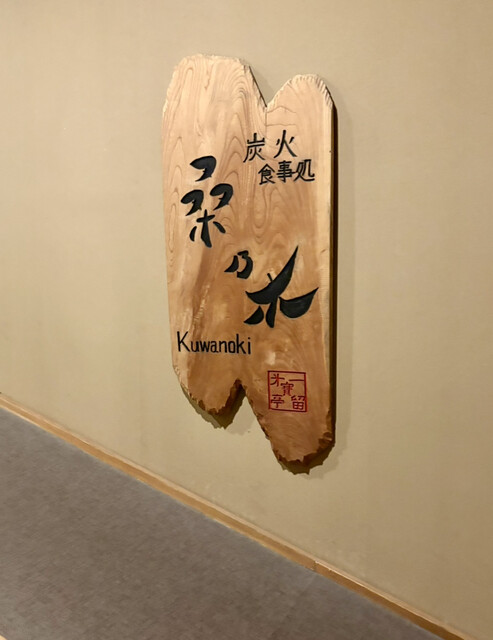 炭火
食事処
桑乃木
Kuwanoki
㐧一寶亭留